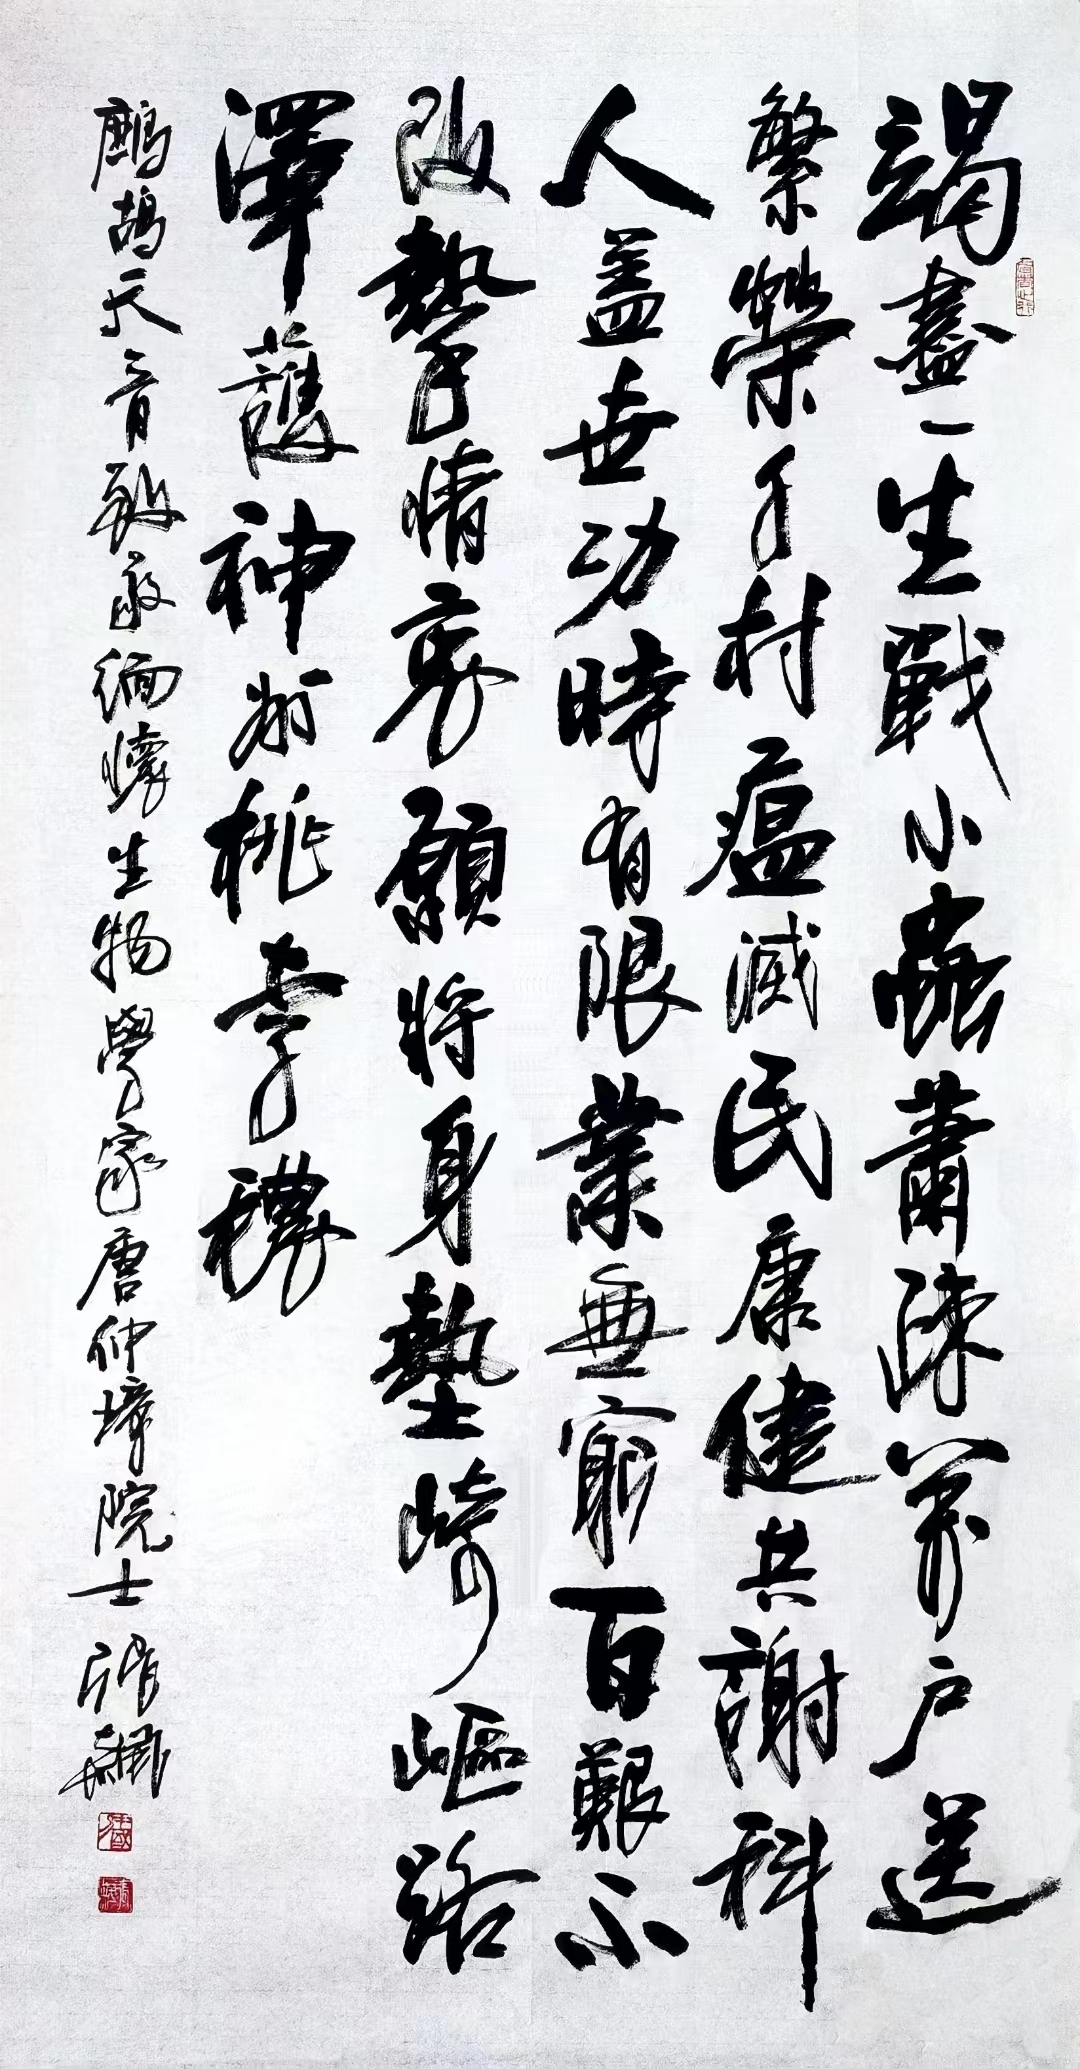 竭盡一生戰小蟲蕭疎萬戶送
繁榮千村瘟滅民康健共謝科
人蓋世功時有限業無窮百艱不
改摯情衷願將身墊崎嶇路
澤護神州桃李穠
鷓鴣天致敬緬懷生物學家唐仲璋院士 張飆